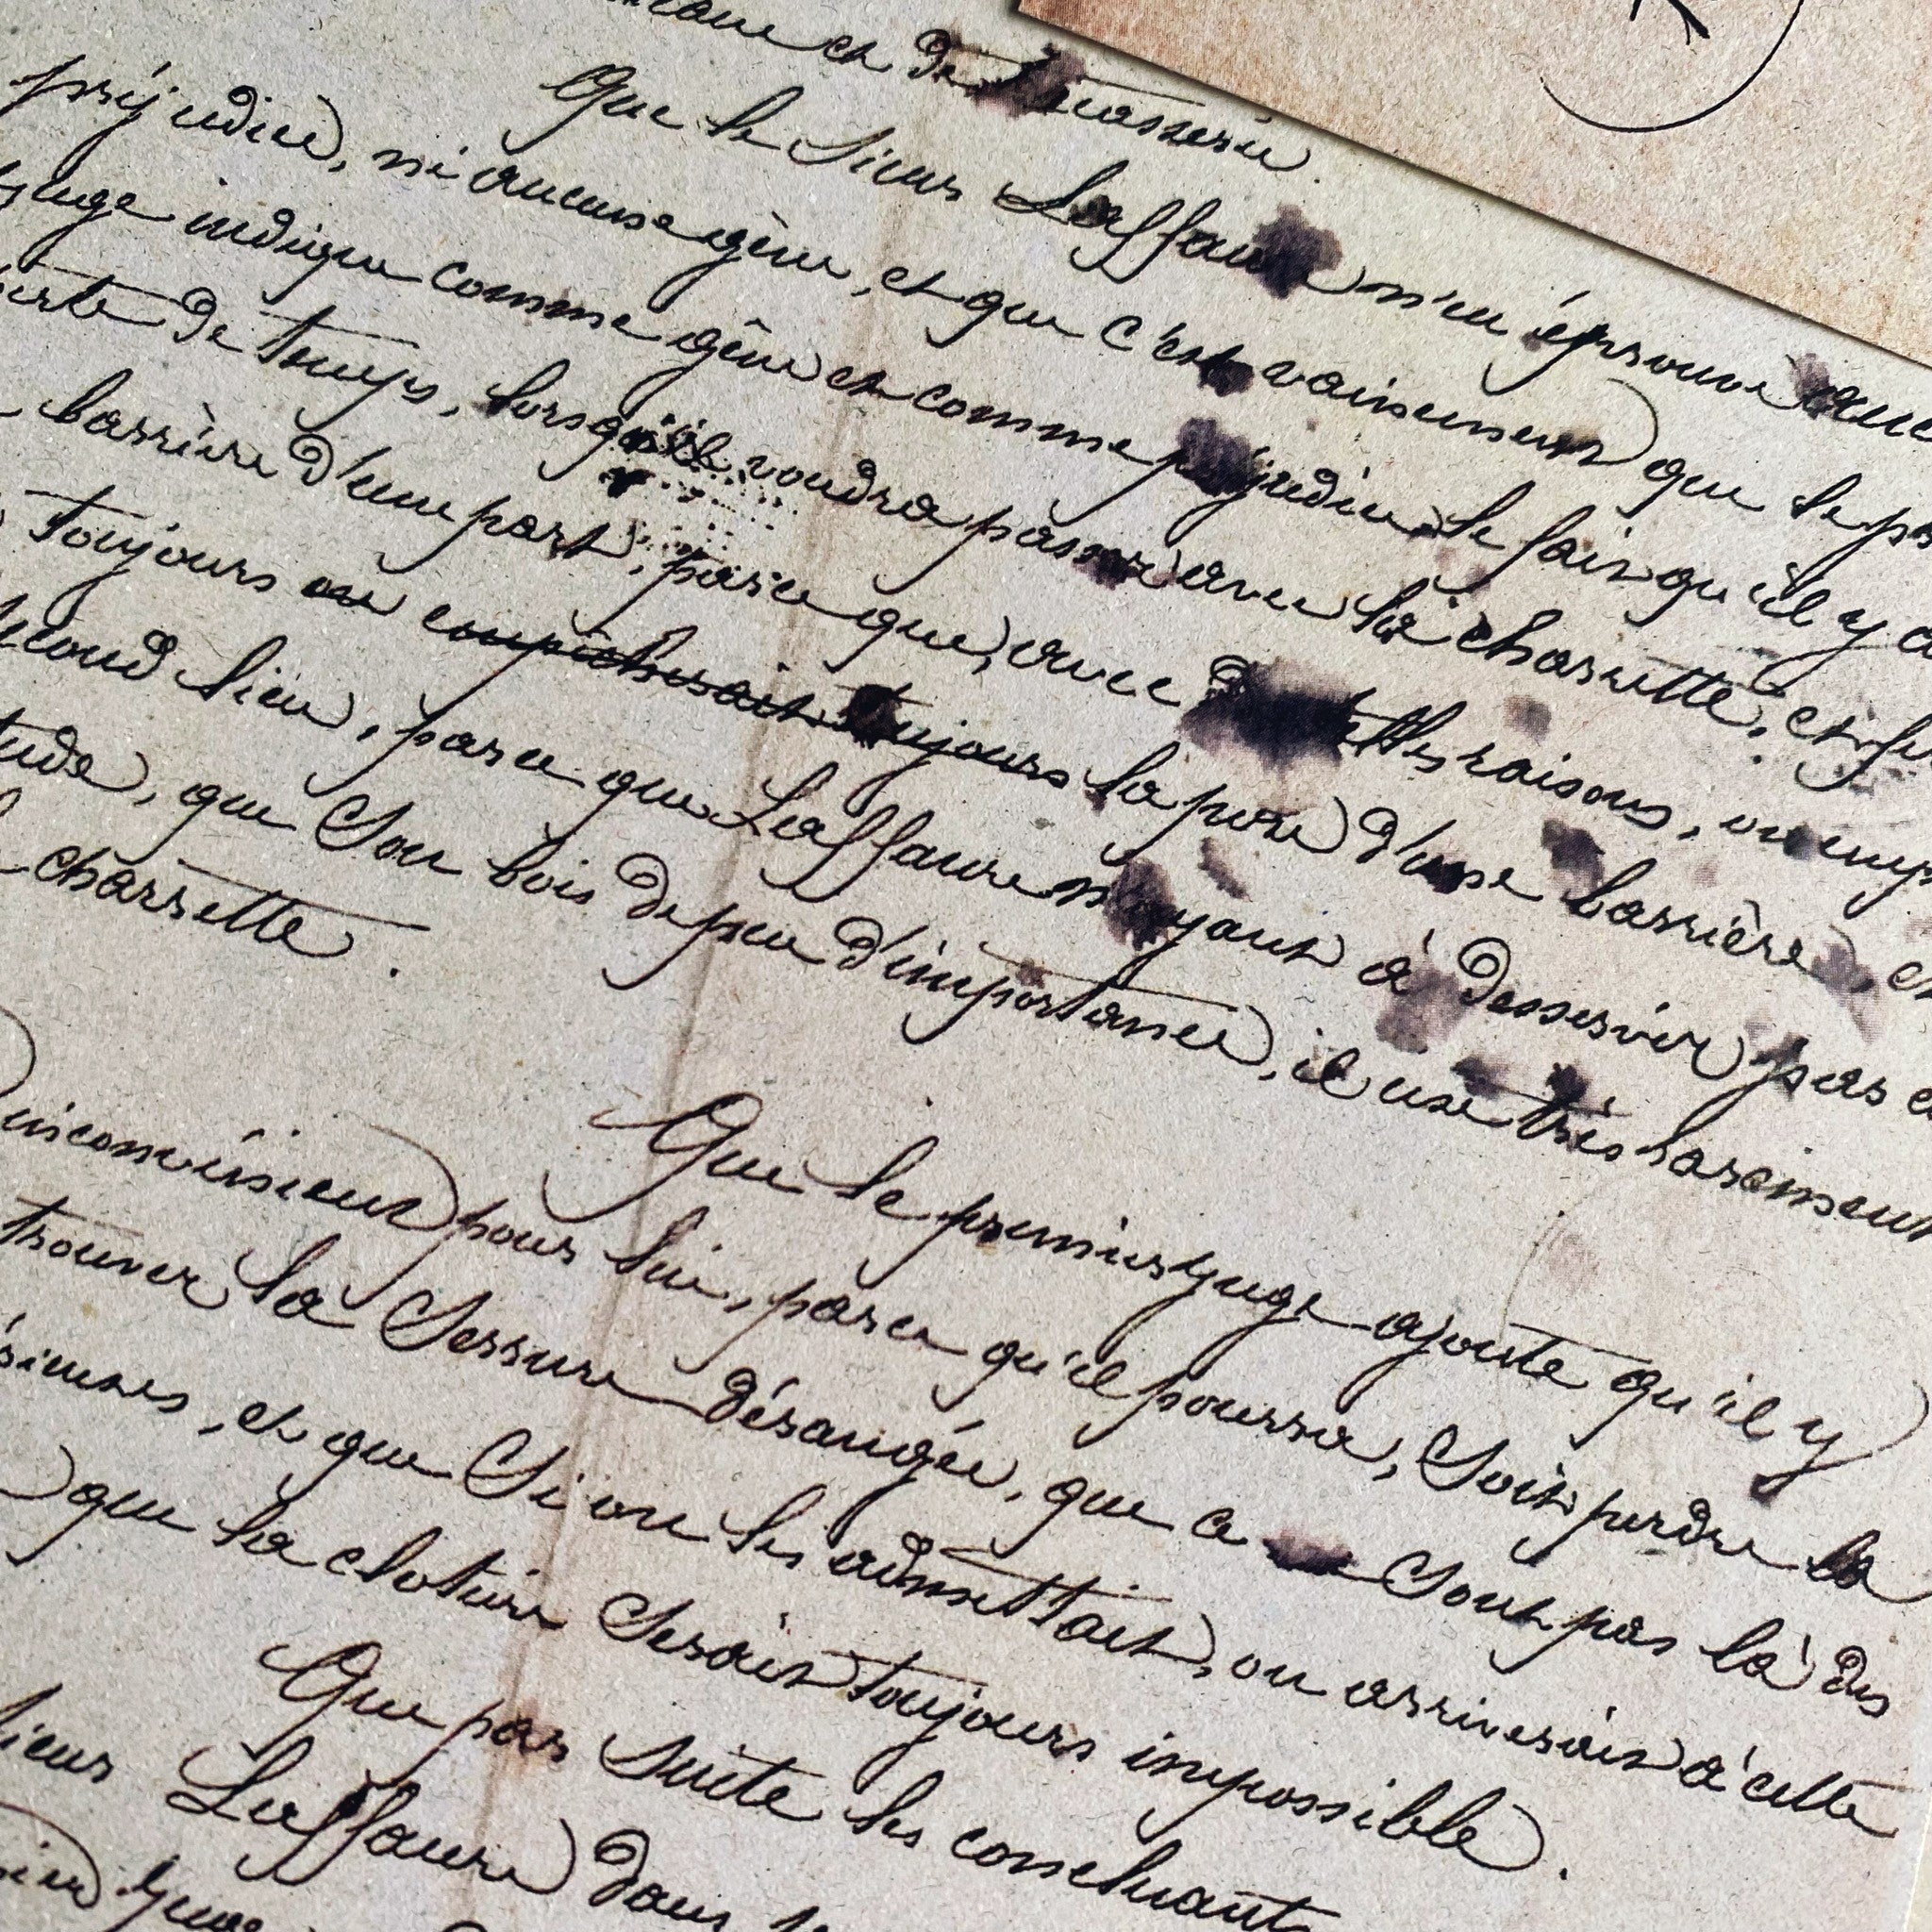 et de tracasserie.
Que le Sieur Laffaure n'en éprouve
préjudice, ni aucune gêne, et que c'est vainement que le
juge indique comme gêne et comme préjudice le fait qu'il y a
de temps, lorsqu'il voudra passer avec la charrette, et
barrière d'une part, parce que, avec de telles raisons, on
toujours on empêcherait toujours la pose d'une barrière, en
second lieu, parce que Laffaure n'ayant à desservir par
que Son bois de peu d'importance, il use très rarement
charrette.
Que le premier juge ajoute qu'il y
inconvénient pour lui, parce qu'il pourra, Soit perdre la
trouver la Serrure dérangée, que ce Sont pas là des
et que Si on les admettait, on arriverait à cette
que la cloture Serait toujours impossible.
Que par Suite les concluants
Sieur Laffaure dans